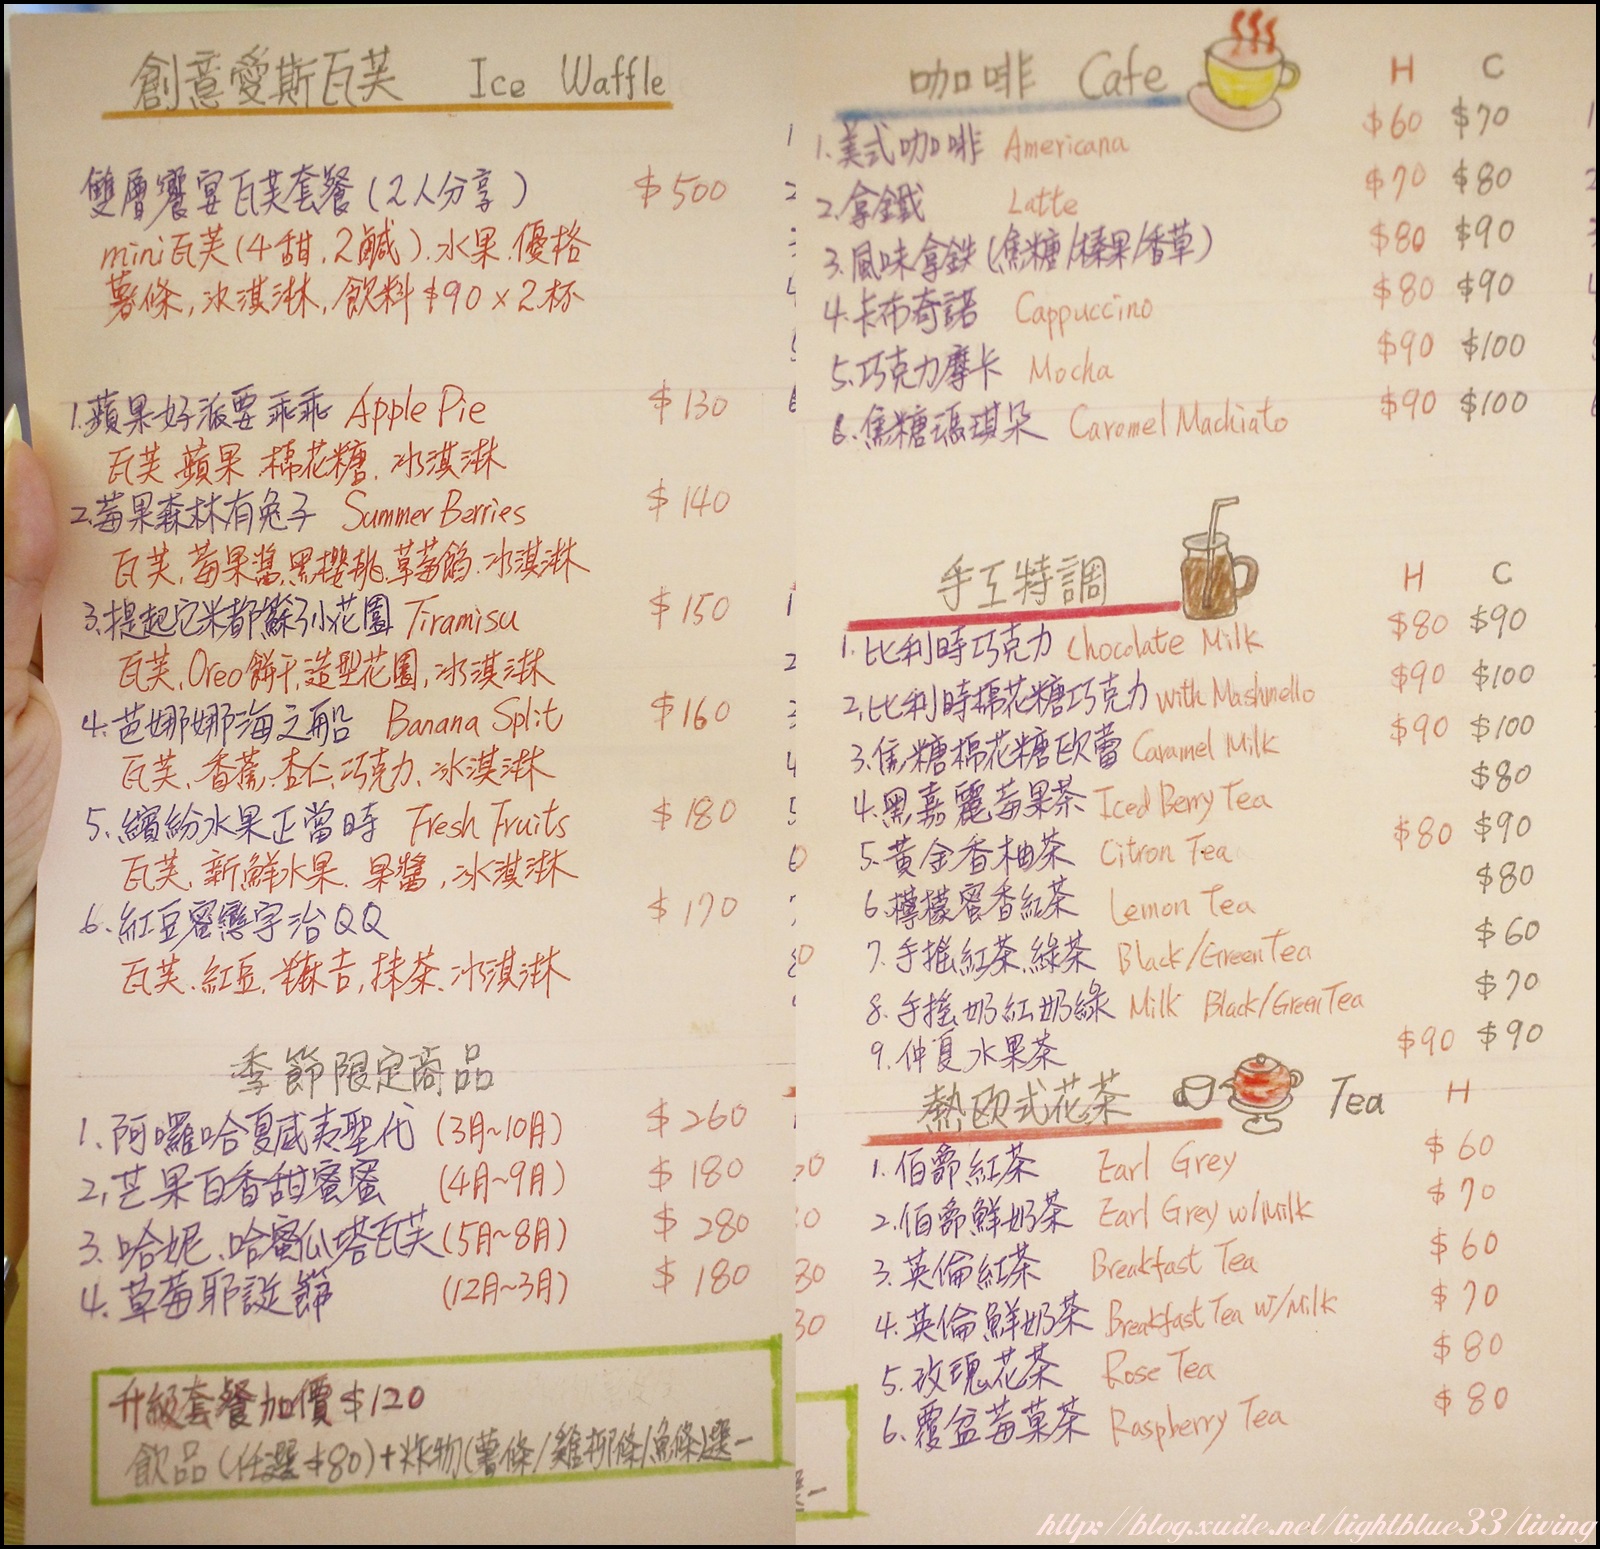 創意愛斯瓦芙 Ice Waffle
雙層饗宴瓦芙套餐(2人分享) $500
mini瓦芙(4甜.2鹹).水果.優格
薯條,冰淇淋,飲料$90×2杯
1.蘋果好派要乖乖 Apple Pie $130
瓦芙.蘋果.棉花糖.冰淇淋
2.莓果森林有兔子 Summer Berries $140
瓦芙,莓果醬,黑櫻桃,草莓餡.冰淇淋
3.提起它米都蘇小花園 Tiramisu $150
瓦芙,Oreo餅干,造型花園,冰淇淋
4.芭娜娜海之船 Banana Split $160
瓦芙.香蕉.杏仁.巧克力.冰淇淋
5.繽紛水果正當時 Fresh Fruits $180
瓦芙.新鮮水果.果醬,冰淇淋
6.紅豆蜜戀宇治QQ $170
瓦芙.紅豆.麻吉,抹茶.冰淇淋
季節限定商品
1.阿囉哈夏威夷聖代 (3月~10月) $260
2.芒果百香甜蜜蜜 (4月~9月) $180
3.哈妮.哈蜜瓜塔瓦芙(5月~8月) $280
4.草莓耶誕節 (12月~3月) $180
升級套餐加價$120
飲品(任選$80)+炸物(薯條/雞柳條/魚條)選一
咖啡 Cafe H C
1.美式咖啡 Americana $60 $70
2.拿鐵 Latte $70 $80
3.風味拿鉄(焦糖/榛果/香草) $80 $90
4.卡布奇諾 Cappuccino $80 $90
5.巧克力摩卡 Mocha $90 $100
6.焦糖瑪琪朵 Caramel Machiato $90 $100
手工特調 H C
1.比利時巧克力 Chocolate Milk $80 $90
2.比利時棉花糖巧克力 with Mashmello $90 $100
3.焦糖棉花糖欧蕾 Caramel Milk $90 $100
4.黑嘉麗莓果茶 Iced Berry Tea $80
5.黃金香柚茶 Citron Tea $80 $90
6.檸檬蜜香紅茶 Lemon Tea $80
7.手搖紅茶.綠茶 Black/Green Tea $60
8.手搖奶紅奶綠 Milk Black/Green Tea $70
9.仲夏水果茶 $90 $90
熱欧式花茶 Tea H
1.伯爵紅茶 Earl Grey $60
2.伯爵鮮奶茶 Earl Grey w/Milk $70
3.英倫紅茶 Breakfast Tea $60
4.英倫鮮奶茶 Breakfast Tea w/Milk $70
5.玫瑰花茶 Rose Tea $80
6.覆盆莓菓茶 Raspberry Tea $80
http://blog.xuite.net/lightblue33/living